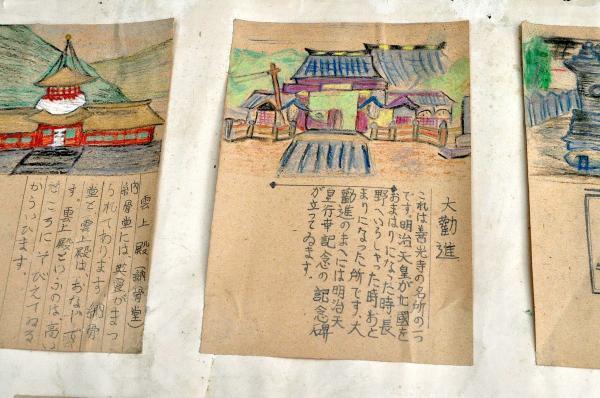 大勸進
これは善光寺の名所の一つ
です。明治天皇が北國を
おまはりになった時、長
野へいらしゃった時おと
まりになった所です。大
勸進のまへには明治天
皇行幸記念の記念碑
が立ってゐます。
雲上殿(納骨堂)
納骨堂には、お骨がまつ
られてあります。納骨
堂と雲上殿は、おないで
す。雲上殿といふのは高い
ところにそびえてゐる
からいひます。